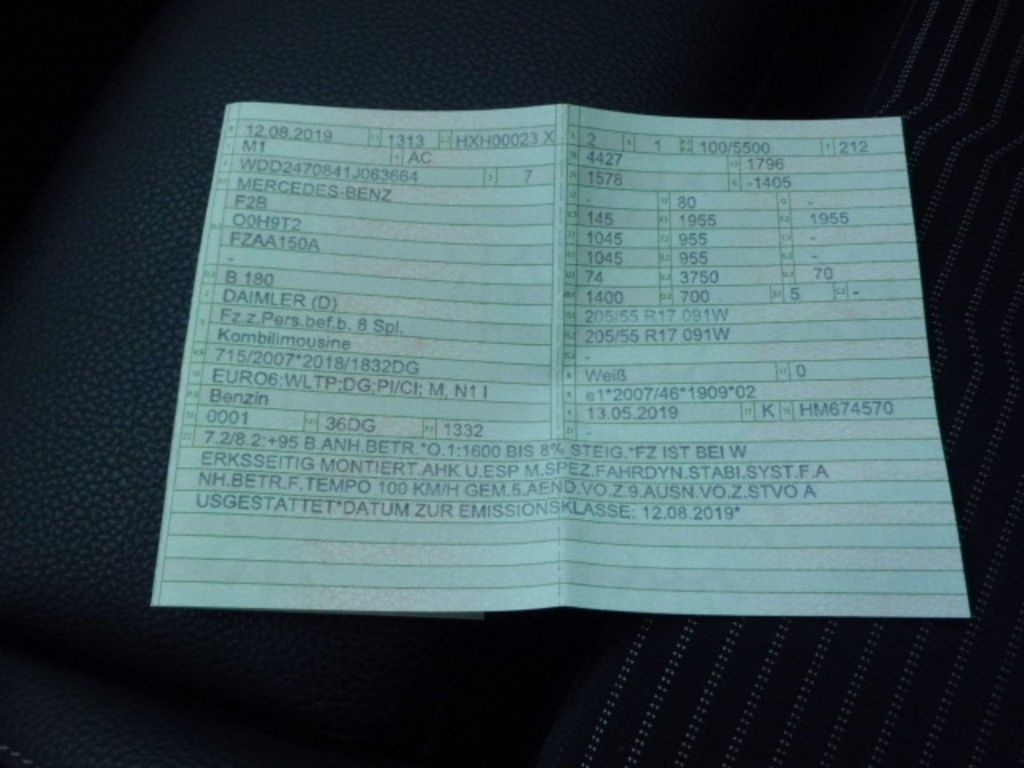 12.08.2019 1313 HXH00023 X
M1 AC
WDD2470841J063664 7
MERCEDES-BENZ
F2B
O0H9T2
FZAA150A
-
B 180
DAIMLER (D)
Fz.z.Pers.bef.b. 8 Spl.
Kombilimousine
715/2007*2018/1832DG
EURO6;WLTP;DG;PI/CI; M, N1 I
Benzin
0001 36DG 1332
2 1 100/5500 212
4427 1796
1578 -1405
- 80 -
145 1955 1955
1045 955 -
1045 955 -
74 3750 70
1400 700 5 -
205/55 R17 091W
205/55 R17 091W
-
Weiß 0
e1*2007/46*1909*02
13.05.2019 K HM674570
-
7.2/8.2:+95 B.ANH.BETR.*O.1:1600 BIS 8% STEIG.*FZ IST BEI W
ERKSSEITIG MONTIERT.AHK U.ESP M.SPEZ.FAHRDYN.STABI.SYST.F.A
NH.BETR.F.TEMPO 100 KM/H GEM.5.AEND.VO.Z.9.AUSN.VO.Z.STVO A
USGESTATTET*DATUM ZUR EMISSIONSKLASSE: 12.08.2019*